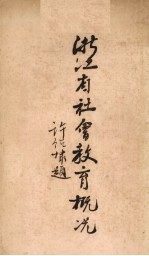 浙江省社會教育概况
許紹棣題